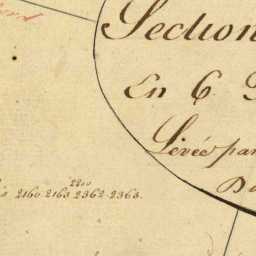 Section
En 6
Levée par
2200
2160. 2163. 2362. 2363.